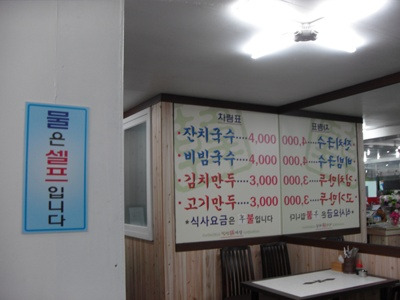 물은 셀프입니다
차림표
잔치국수 4,000
비빔국수 4,000
김치만두 3,000
고기만두 3,000
식사요금은 선불입니다